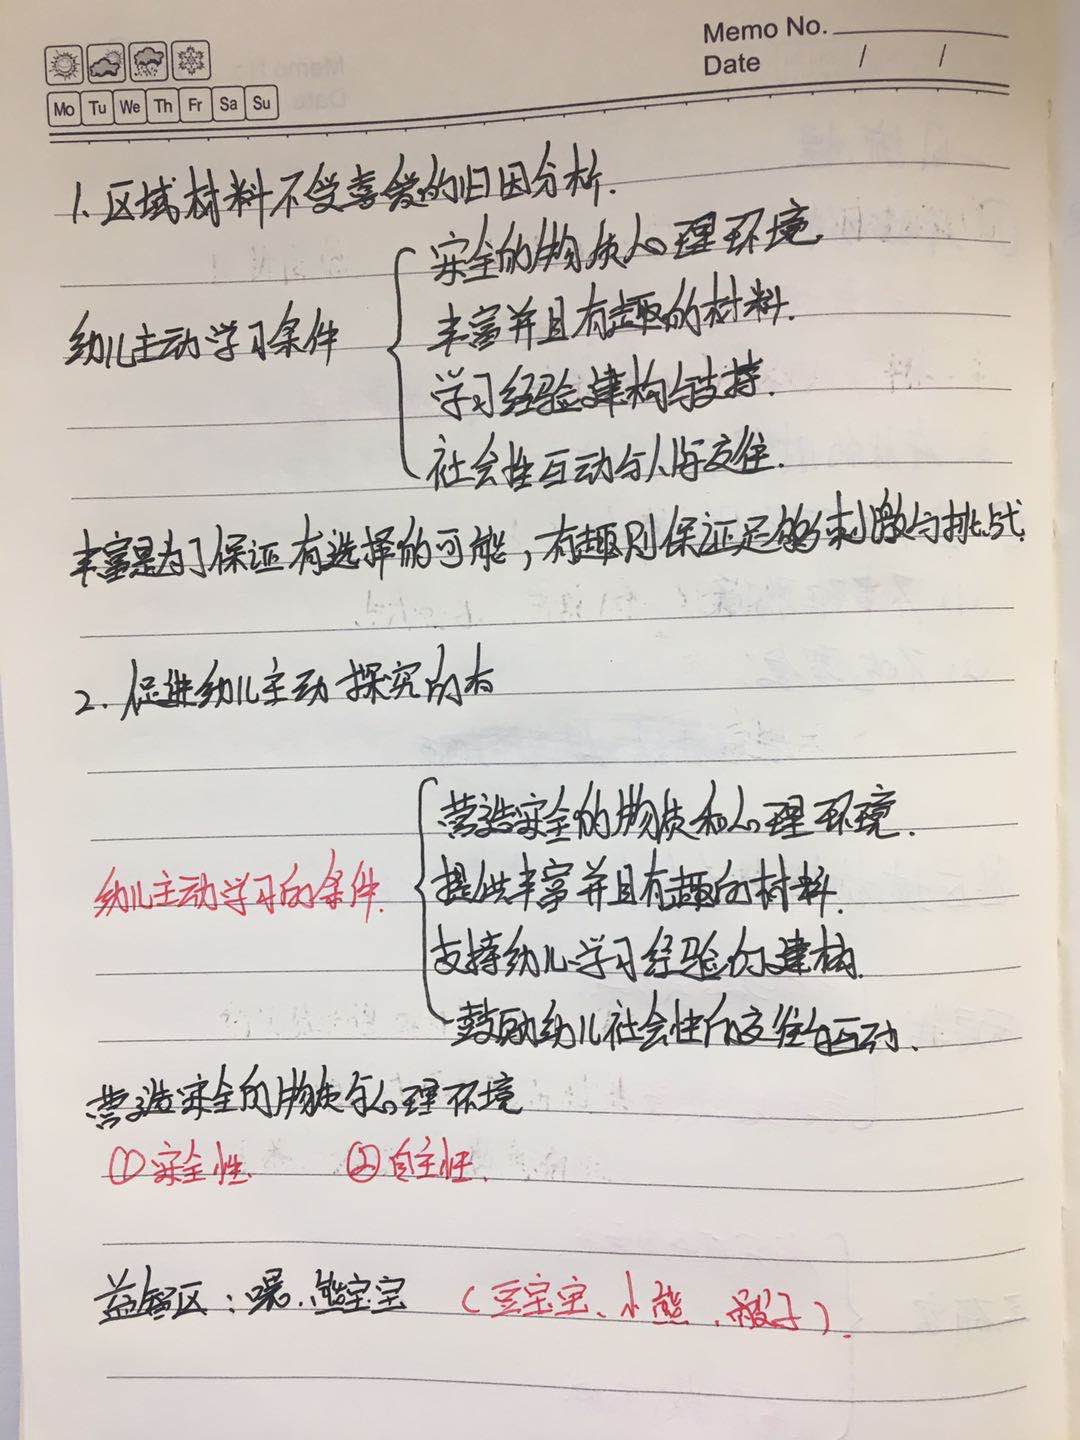 Memo No.
Date / /
Mo Tu We Th Fr Sa Su
1. 区域材料不受喜爱的归因分析.
幼儿主动学习条件
安全的物质心理环境
丰富并且有趣的材料.
学习经验建构与支持.
社会性互动与人际交往.
丰富是为了保证有选择的可能,有趣则保证足够刺激与挑战
2. 促进幼儿主动探究的
幼儿主动学习的条件.
营造安全的物质和心理环境.
提供丰富并且有趣的材料.
支持幼儿学习经验的建构.
鼓励幼儿社会性的交往与互动.
营造安全的物质与心理环境
①安全性. ②自主性.
益智区:嘿.熊宝宝 (豆宝宝、小熊、骰子).